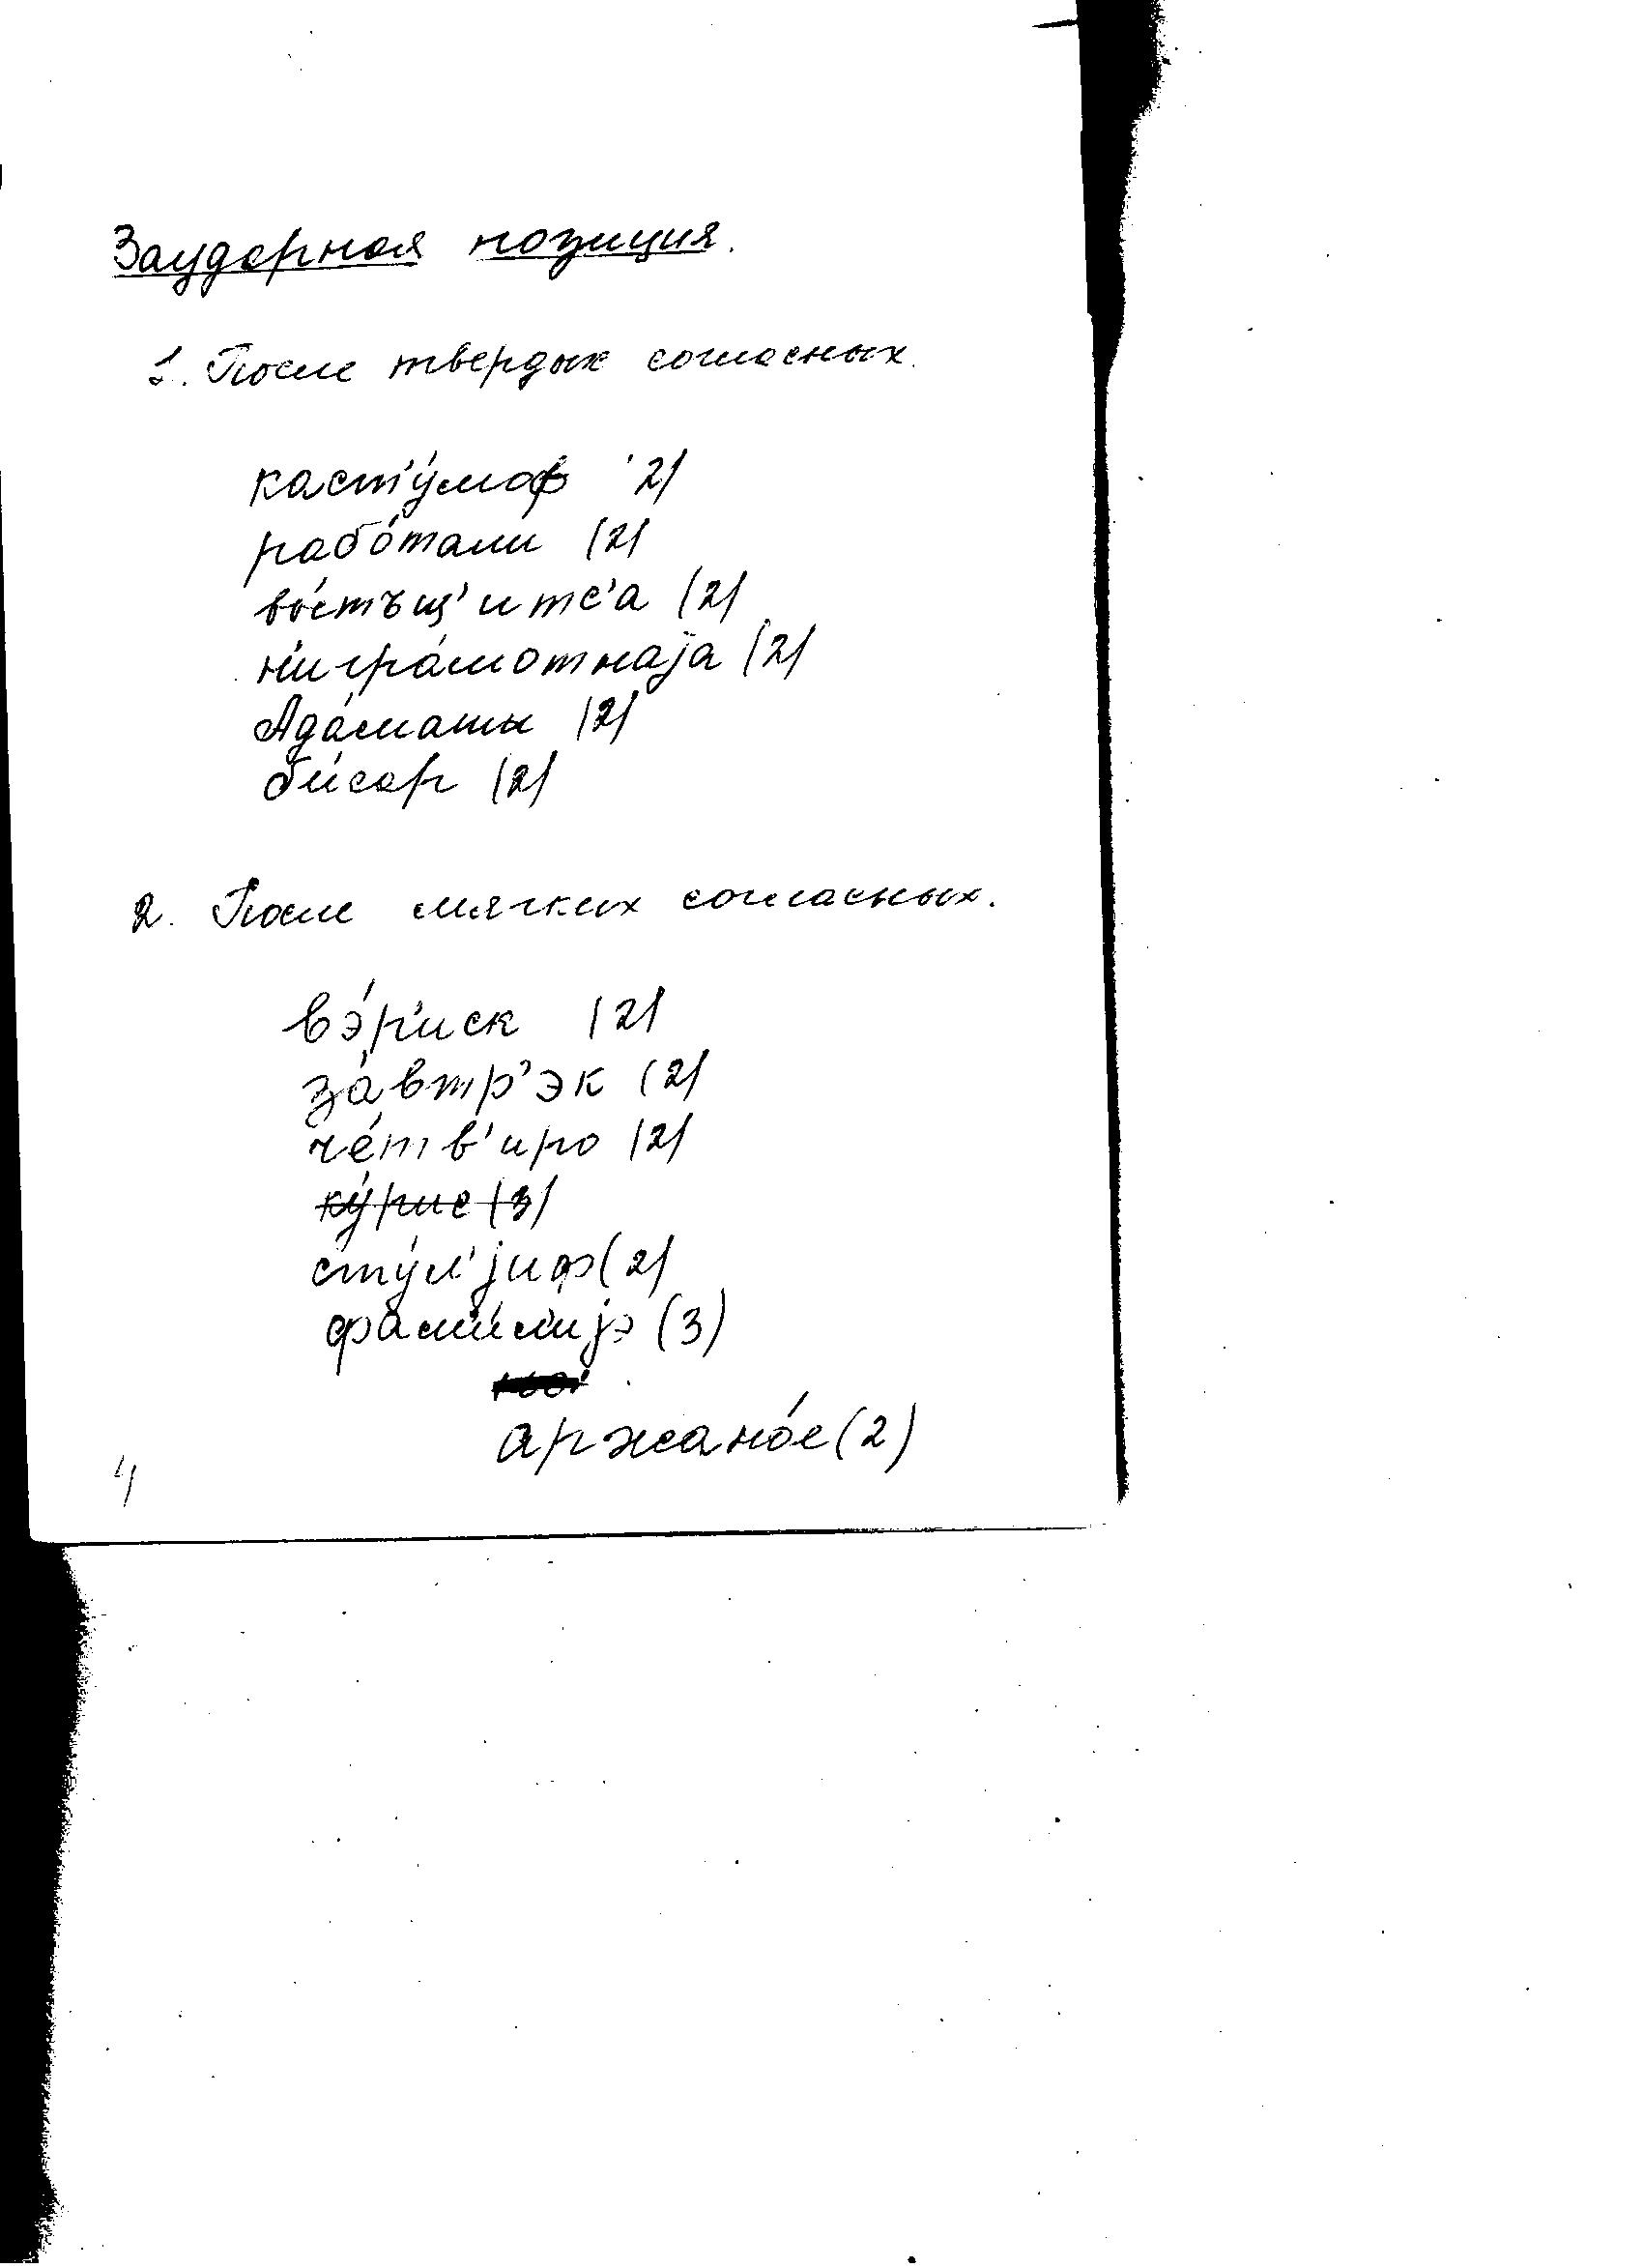 Заударная позиция.
1. После твердых согласных.
каст'у́моф (2)
рабо́тали (2)
вы́стъщ'итс'а (2)
н'игра́мотнаjа (2)
Ада́маты (2)
би́сар (2)
2. После мягких согласных.
вэ́р'иск (2)
за́втр'эк (2)
че́тв'иро (2)
ку́рис (3)
сту́л'jиф (2)
фам'и́л'иjэ (3)
аржано́е (2)
4